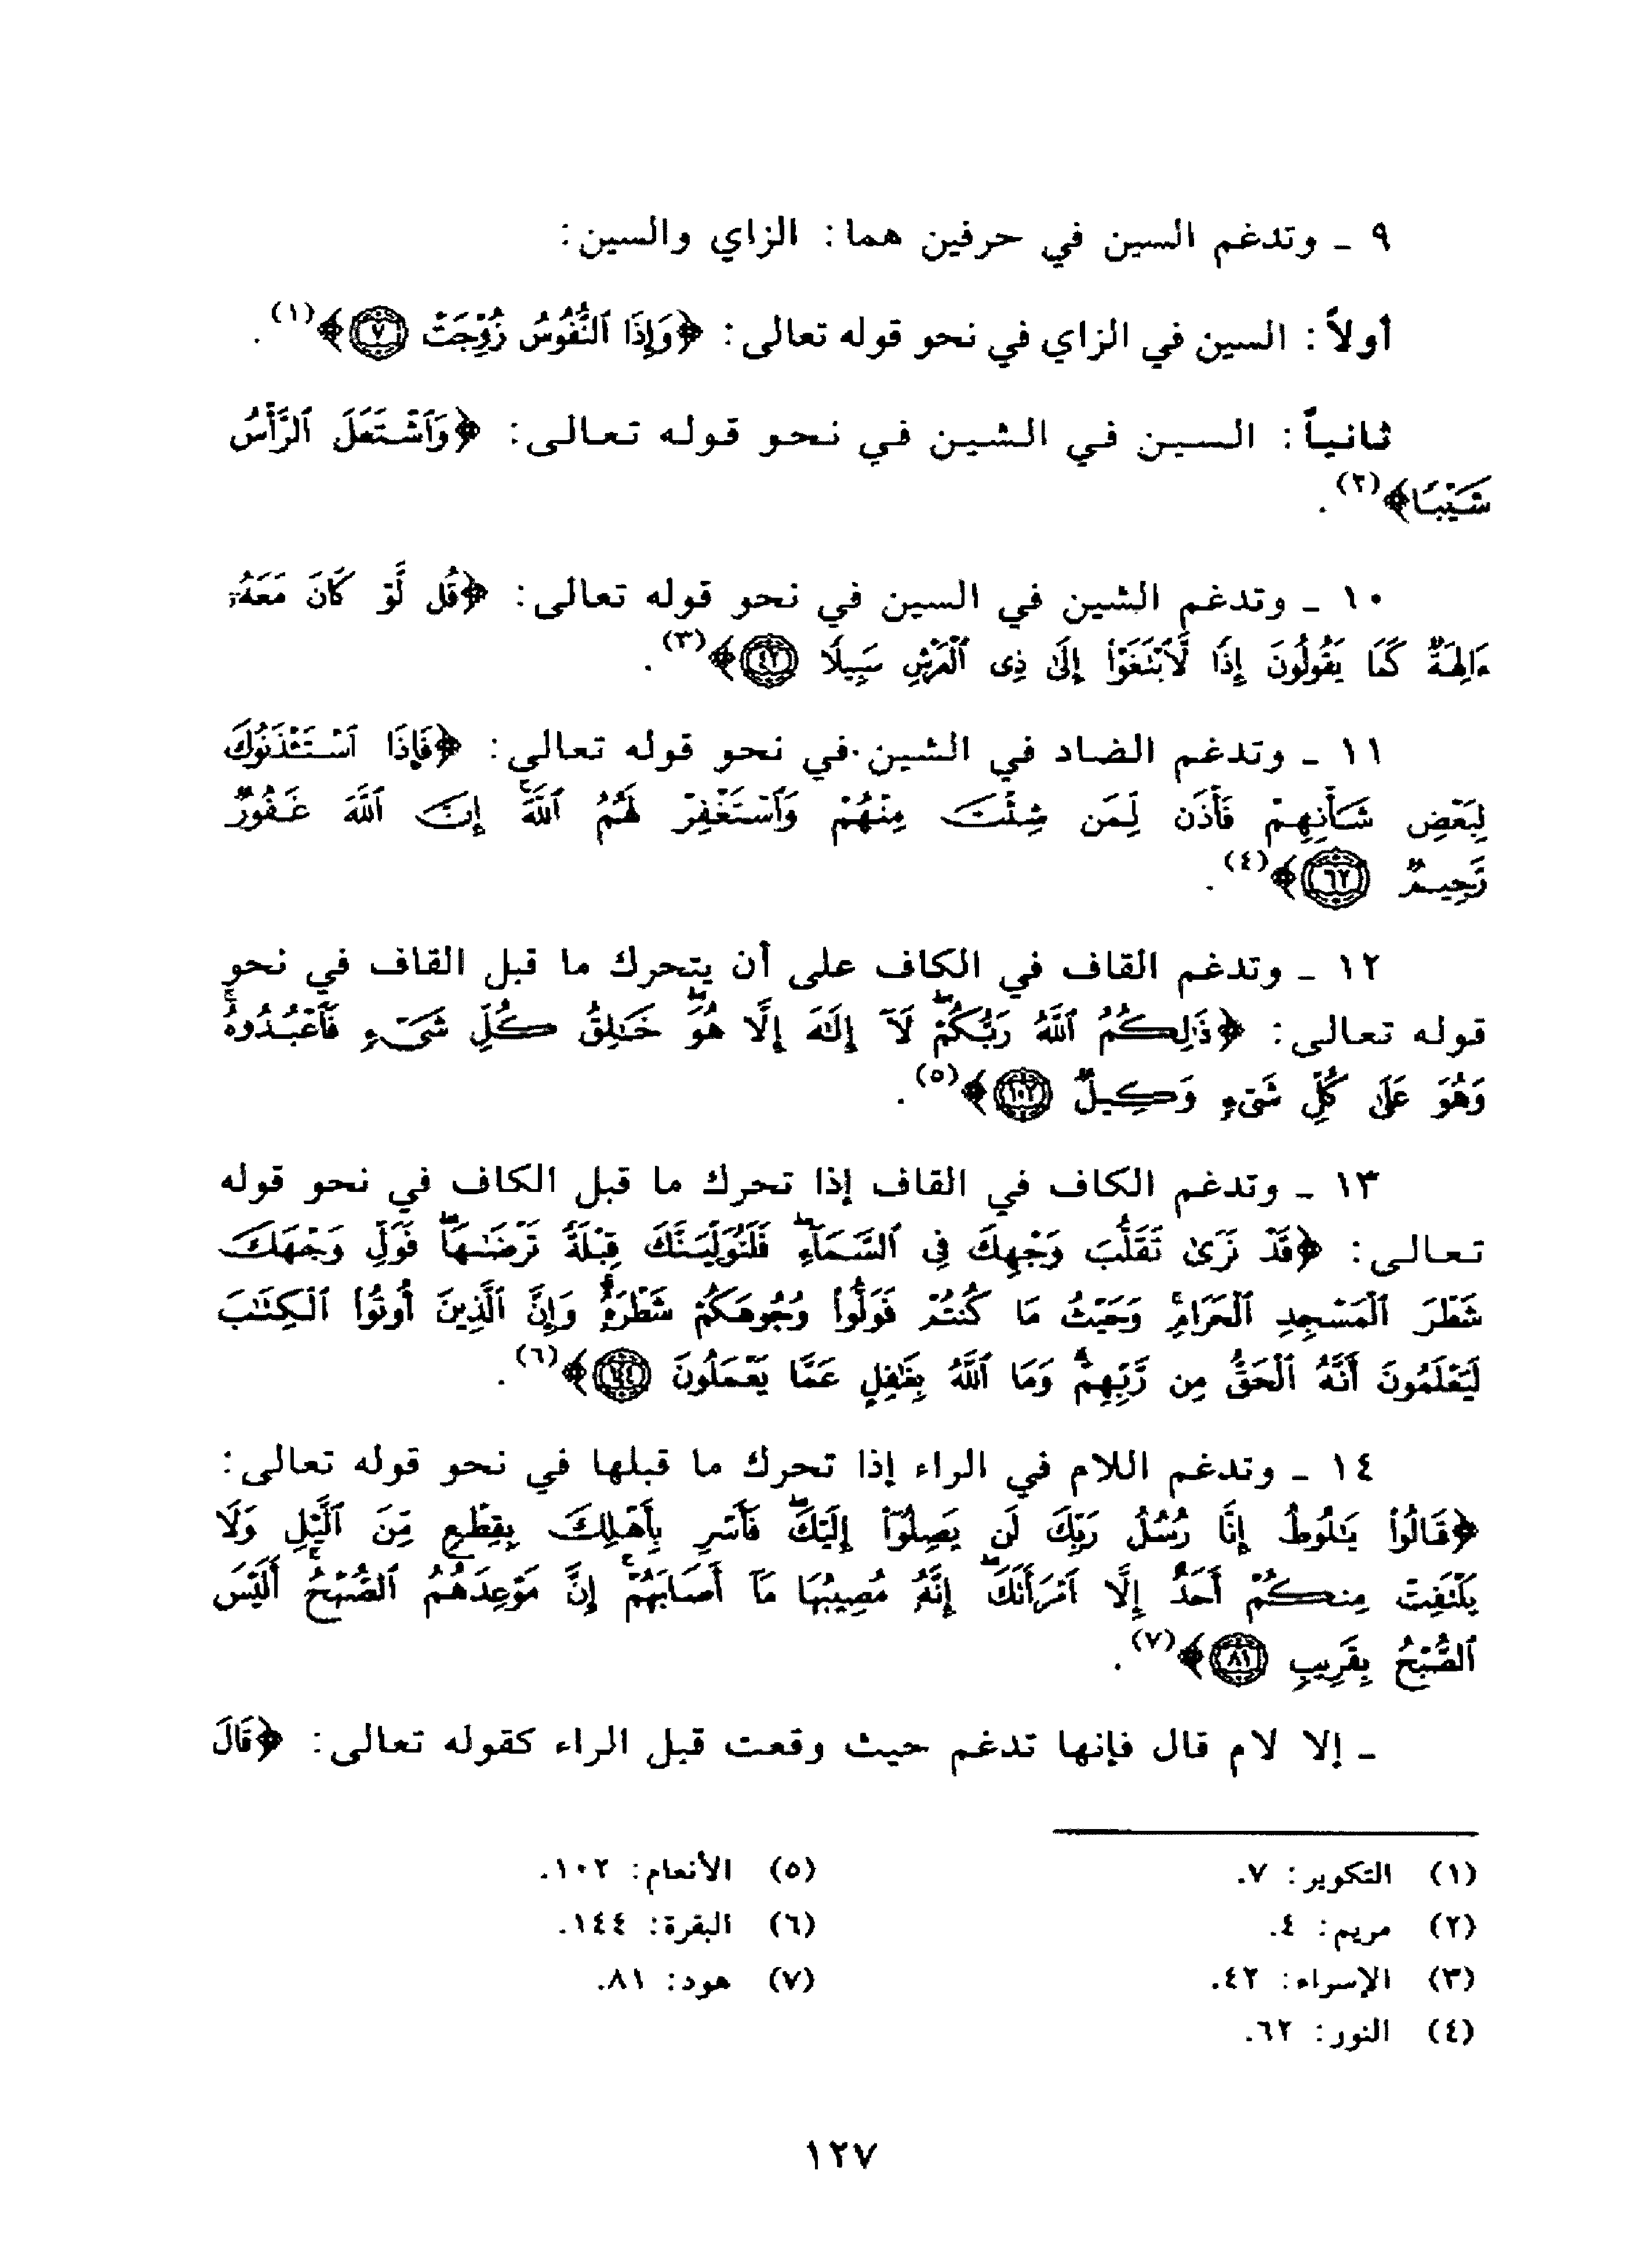 ٩ ـ وتدغم السين في حرفين هما: الزاي والسين:
أولاً: السين في الزاي في نحو قوله تعالى: ﴿وَإِذَا ٱلنُّفُوسُ زُوِّجَتْ ٧﴾(١).
ثانياً: السين في الشين في نحو قوله تعالى: ﴿وَٱشْتَعَلَ ٱلرَّأْسُ
شَيْبًا﴾(٢).
١٠ ـ وتدغم الشين في السين في نحو قوله تعالى: ﴿قُل لَّوْ كَانَ مَعَهُۥٓ
ءَالِهَةٌ كَمَا يَقُولُونَ إِذًا لَّٱبْتَغَوْا۟ إِلَىٰ ذِى ٱلْعَرْشِ سَبِيلًا ٤٢﴾(٣).
١١ ـ وتدغم الضاد في الشين في نحو قوله تعالى: ﴿فَإِذَا ٱسْتَـْٔذَنُوكَ
لِبَعْضِ شَأْنِهِمْ فَأْذَن لِّمَن شِئْتَ مِنْهُمْ وَٱسْتَغْفِرْ لَهُمُ ٱللَّهَ ۚ إِنَّ ٱللَّهَ غَفُورٌ
رَّحِيمٌ ٦٢﴾(٤).
١٢ ـ وتدغم القاف في الكاف على أن يتحرك ما قبل القاف في نحو
قوله تعالى: ﴿ذَٰلِكُمُ ٱللَّهُ رَبُّكُمْ ۖ لَآ إِلَـٰهَ إِلَّا هُوَ ۖ خَـٰلِقُ كُلِّ شَىْءٍ فَٱعْبُدُوهُ ۚ
وَهُوَ عَلَىٰ كُلِّ شَىْءٍ وَكِيلٌ ١٠٢﴾(٥).
١٣ ـ وتدغم الكاف في القاف إذا تحرك ما قبل الكاف في نحو قوله
تعالى: ﴿قَدْ نَرَىٰ تَقَلُّبَ وَجْهِكَ فِى ٱلسَّمَآءِ ۖ فَلَنُوَلِّيَنَّكَ قِبْلَةً تَرْضَىٰهَا ۚ فَوَلِّ وَجْهَكَ
شَطْرَ ٱلْمَسْجِدِ ٱلْحَرَامِ ۚ وَحَيْثُ مَا كُنتُمْ فَوَلُّوا۟ وُجُوهَكُمْ شَطْرَهُۥ ۗ وَإِنَّ ٱلَّذِينَ أُوتُوا۟ ٱلْكِتَـٰبَ
لَيَعْلَمُونَ أَنَّهُ ٱلْحَقُّ مِن رَّبِّهِمْ ۗ وَمَا ٱللَّهُ بِغَـٰفِلٍ عَمَّا يَعْمَلُونَ ١٤٤﴾(٦).
١٤ ـ وتدغم اللام في الراء إذا تحرك ما قبلها في نحو قوله تعالى:
﴿قَالُوا۟ يَـٰلُوطُ إِنَّا رُسُلُ رَبِّكَ لَن يَصِلُوٓا۟ إِلَيْكَ ۖ فَأَسْرِ بِأَهْلِكَ بِقِطْعٍ مِّنَ ٱلَّيْلِ وَلَا
يَلْتَفِتْ مِنكُمْ أَحَدٌ إِلَّا ٱمْرَأَتَكَ ۖ إِنَّهُۥ مُصِيبُهَا مَآ أَصَابَهُمْ ۚ إِنَّ مَوْعِدَهُمُ ٱلصُّبْحُ ۚ أَلَيْسَ
ٱلصُّبْحُ بِقَرِيبٍ ٨١﴾(٧).
ـ إلا لام قال فإنها تدغم حيث وقعت قبل الراء كقوله تعالى: ﴿قَالَ
(١) التكوير: ٧.
(٢) مريم: ٤.
(٣) الإسراء: ٤٢.
(٤) النور: ٦٢.
(٥) الأنعام: ١٠٢.
(٦) البقرة: ١٤٤.
(٧) هود: ٨١.
١٢٧